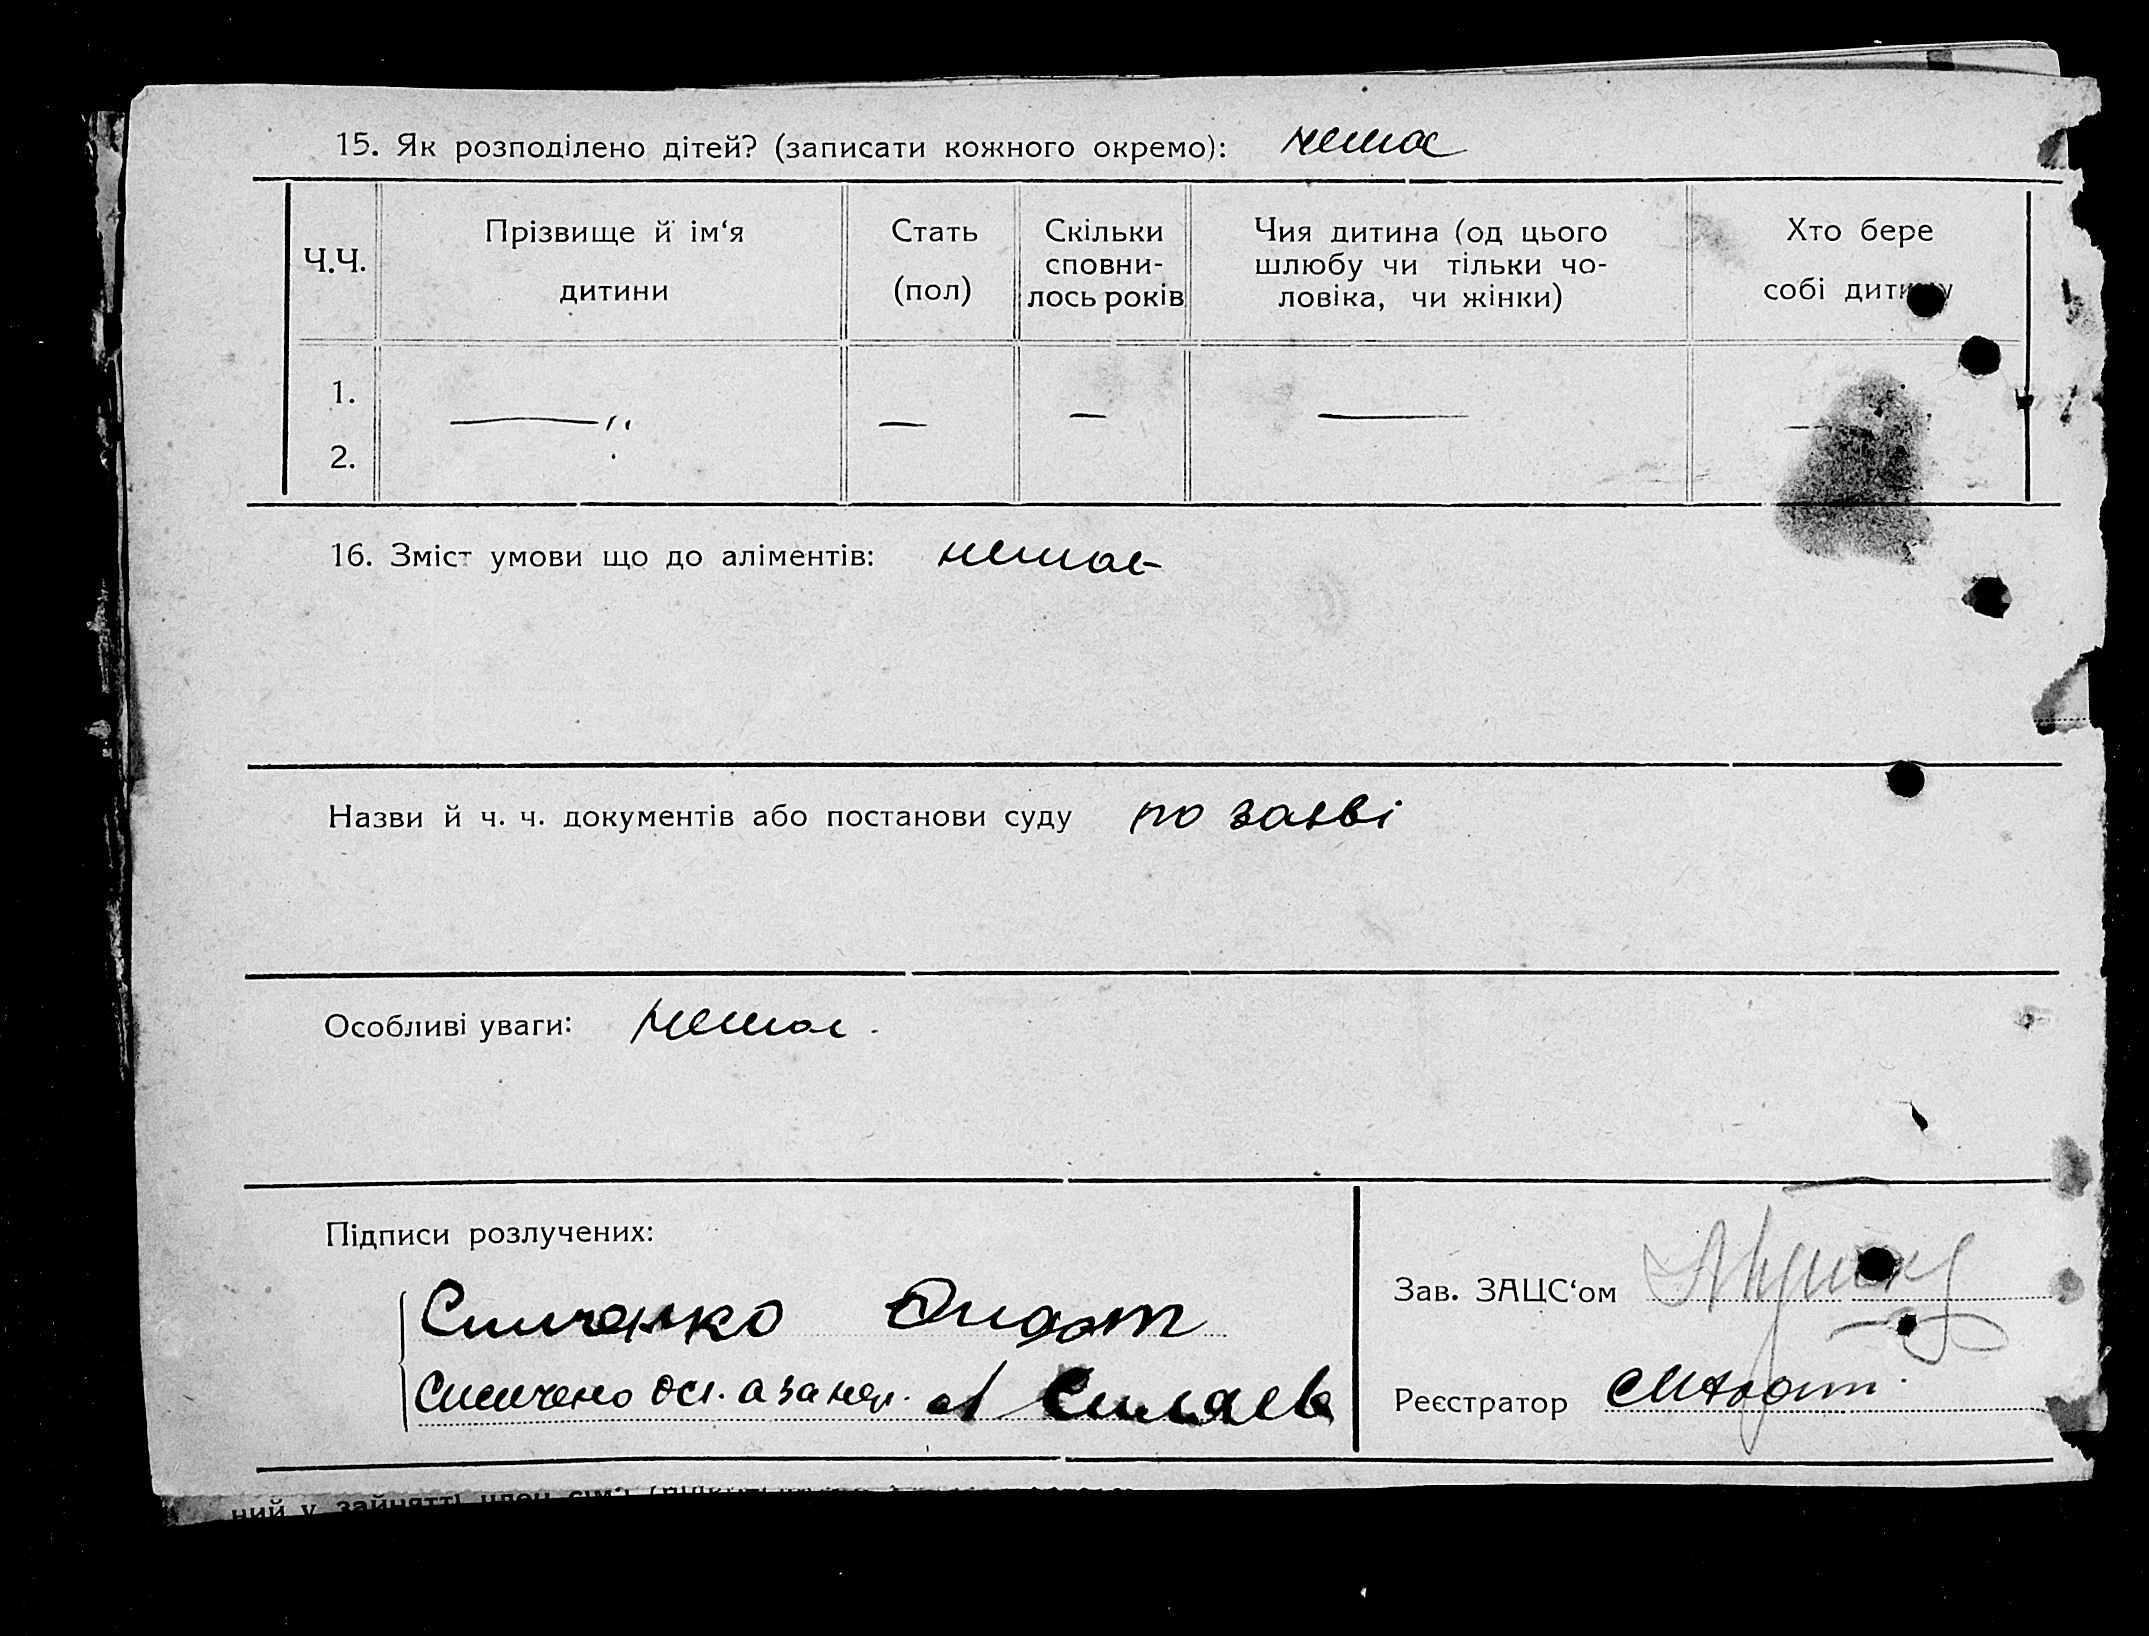 15. Як розподілено дітей? (записати кожного окремо): немає
Ч.Ч.
Прізвище й ім‘я
дитини
Стать
(пол)
Скільки
сповни-
лось років
Чия дитина (од цього
шлюбу чи тільки чо-
ловіка, чи жінки)
Хто бере
собі дитину
1.
2.
16. Зміст умови що до аліментів: немає
Назви й ч. ч. документів або постанови суду по заяві
Особливі уваги: немає.
Підписи розлучених:
Симченко
Зав. ЗАЦС‘ом
Реєстратор
ний у зайнятті член сім‘ї